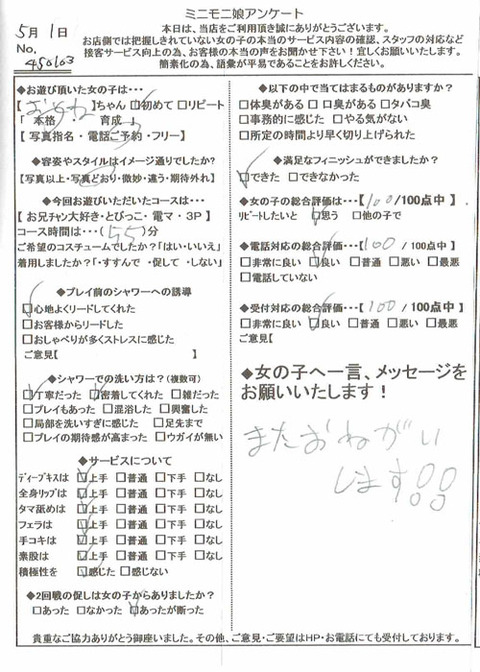 ミニモニ娘アンケート
5月1日
No.
450103
本日は、当店をご利用頂き誠にありがとうございます。
お店側では把握しきれていない女の子の本当のサービス内容の確認、スタッフの対応など
接客サービス向上の為、お客様の本当の声をお聞かせ下さい！宜しくお願いいたします。
簡素化の為、語彙が平易であることをお許しください。
◆お遊び頂いた女の子は･･･
【 】ちゃん □初めて □リピート
「 本格 ・ 育成 」
【 写真指名・電話ご予約・フリー】
◆容姿やスタイルはイメージ通りでしたか?
【写真以上・写真どおり・微妙・違う・期待外れ】
◆今回お遊びいただいたコースは･･･
【 お兄チャン大好き・とびっこ・電マ・3P 】
コース時間は･･･(55)分
ご希望のコスチュームでしたか?「はい・いいえ」
着用しましたか?「・すすんで ・促して ・しない」
◆プレイ前のシャワーへの誘導
□心地よくリードしてくれた
□お客様からリードした
□おしゃべりが多くストレスに感じた
ご意見【 】
◆シャワーでの洗い方は？(複数可)
□丁寧だった □密着してくれた □雑だった
□プレイもあった □混浴した □興奮した
□局部を洗いすぎに感じた □足先まで
□プレイの期待感が高まった □ウガイが無い
◆サービスについて
ディープキスは □上手 □普通 □下手 □なし
全身リップは □上手 □普通 □下手 □なし
タマ舐めは □上手 □普通 □下手 □なし
フェラは □上手 □普通 □下手 □なし
手コキは □上手 □普通 □下手 □なし
素股は □上手 □普通 □下手 □なし
積極性を □感じた □感じない
◆2回戦の促しは女の子からありましたか?
□あった □なかった □あったが断った
◆以下の中で当てはまるものがありますか?
□体臭がある □口臭がある □タバコ臭
□事務的に感じた □やる気がない
□所定の時間より早く切り上げられた
◆満足なフィニッシュができましたか？
□できた □できなかった
◆女の子の総合評価は･･･【100/100点中 】
リピートしたいと □思う □他の子で
◆電話対応の総合評価･･･【100 / 100点中 】
□非常に良い □良い □普通 □悪い □最悪
□電話していない
◆受付対応の総合評価･･･【100/100点中 】
□非常に良い □良い □普通 □悪い □最悪
ご意見【 】
◆女の子へ一言、メッセージを
お願いいたします！
またおねがい
します!!
貴重なご協力ありがとう御座いました。その他、ご意見・ご要望はHP・お電話にても受付しております。